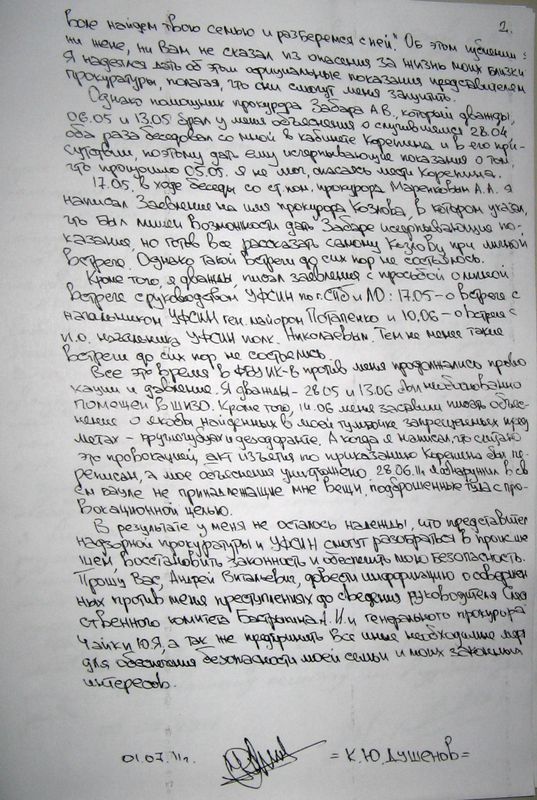 2.
воле найдем твою семью и разберемся с ней." Об этом ни
ни жене, ни Вам не сказал из опасения за жизнь моих близких
Я надеялся дать об этом официальные показания представителям
прокуратуры, полагая, что они смогут меня защитить.
Однако помощник прокурора Забара А.В., который дважды,
06.05 и 13.05 брал у меня объяснения о случившемся 28.04,
оба раза беседовал со мной в кабинете Корепина и в его при-
сутствии, поэтому дать ему исчерпывающие показания о том,
что произошло 05.05. я не мог, опасаясь мести Корепина.
17.05, в ходе беседы со ст. пом. прокурора Маренковым А.А. я
написал Заявление на имя прокурора Козлова, в котором указал,
что был лишен возможности дать Забаре исчерпывающие по-
казания, но готов все рассказать самому Козлову при личной
встрече. Однако такой встречи до сих пор не состоялось.
Кроме того, я дважды писал заявления с просьбой о личной
встрече с руководством УФСИН по г. СПб и ЛО: 17.05 - о встрече с
начальником УФСИН ген. майором Потапенко и 10.06 - о встрече с
И.о. начальника УФСИН полк. Николаевым. Тем не менее такие
встречи до сих пор не состоялись.
Все это время в ФБУ ИК-8 против меня продолжались прово-
кации и давление. Я дважды - 28.05 и 13.06 был необоснованно
помещен в ШИЗО. Кроме того, 14.06 меня заставили писать объяс-
нение о якобы найденных в моей тумбочке запрещенных пред-
метах - и дезодоранте. А когда я написал, что считаю
это провокацией, акт изъятия по приказанию Корепина был пе-
реписан, а мое объяснение уничтожено. 28.06.11 я обнаружил в св
ем бауле не принадлежащие мне вещи, подброшенные туда с про-
вокационной целью.
В результате у меня не осталось надежды, что представители
надзорной прокуратуры и УФСИН смогут разобраться в происше
шем, восстановить законность и обеспечить мою безопасность.
Прошу Вас, Андрей Витальевич, довести информацию о совершен
ных против меня преступлениях до сведения руководителя След
ственного комитета Бастрыкина А.И. и генерального прокурора
Чайки Ю.Я, а так же предпринять все иные необходимые меры
для обеспечения безопасности моей семьи и моих законных
интересов.
01.07.11г. = К.Ю. Душенов =